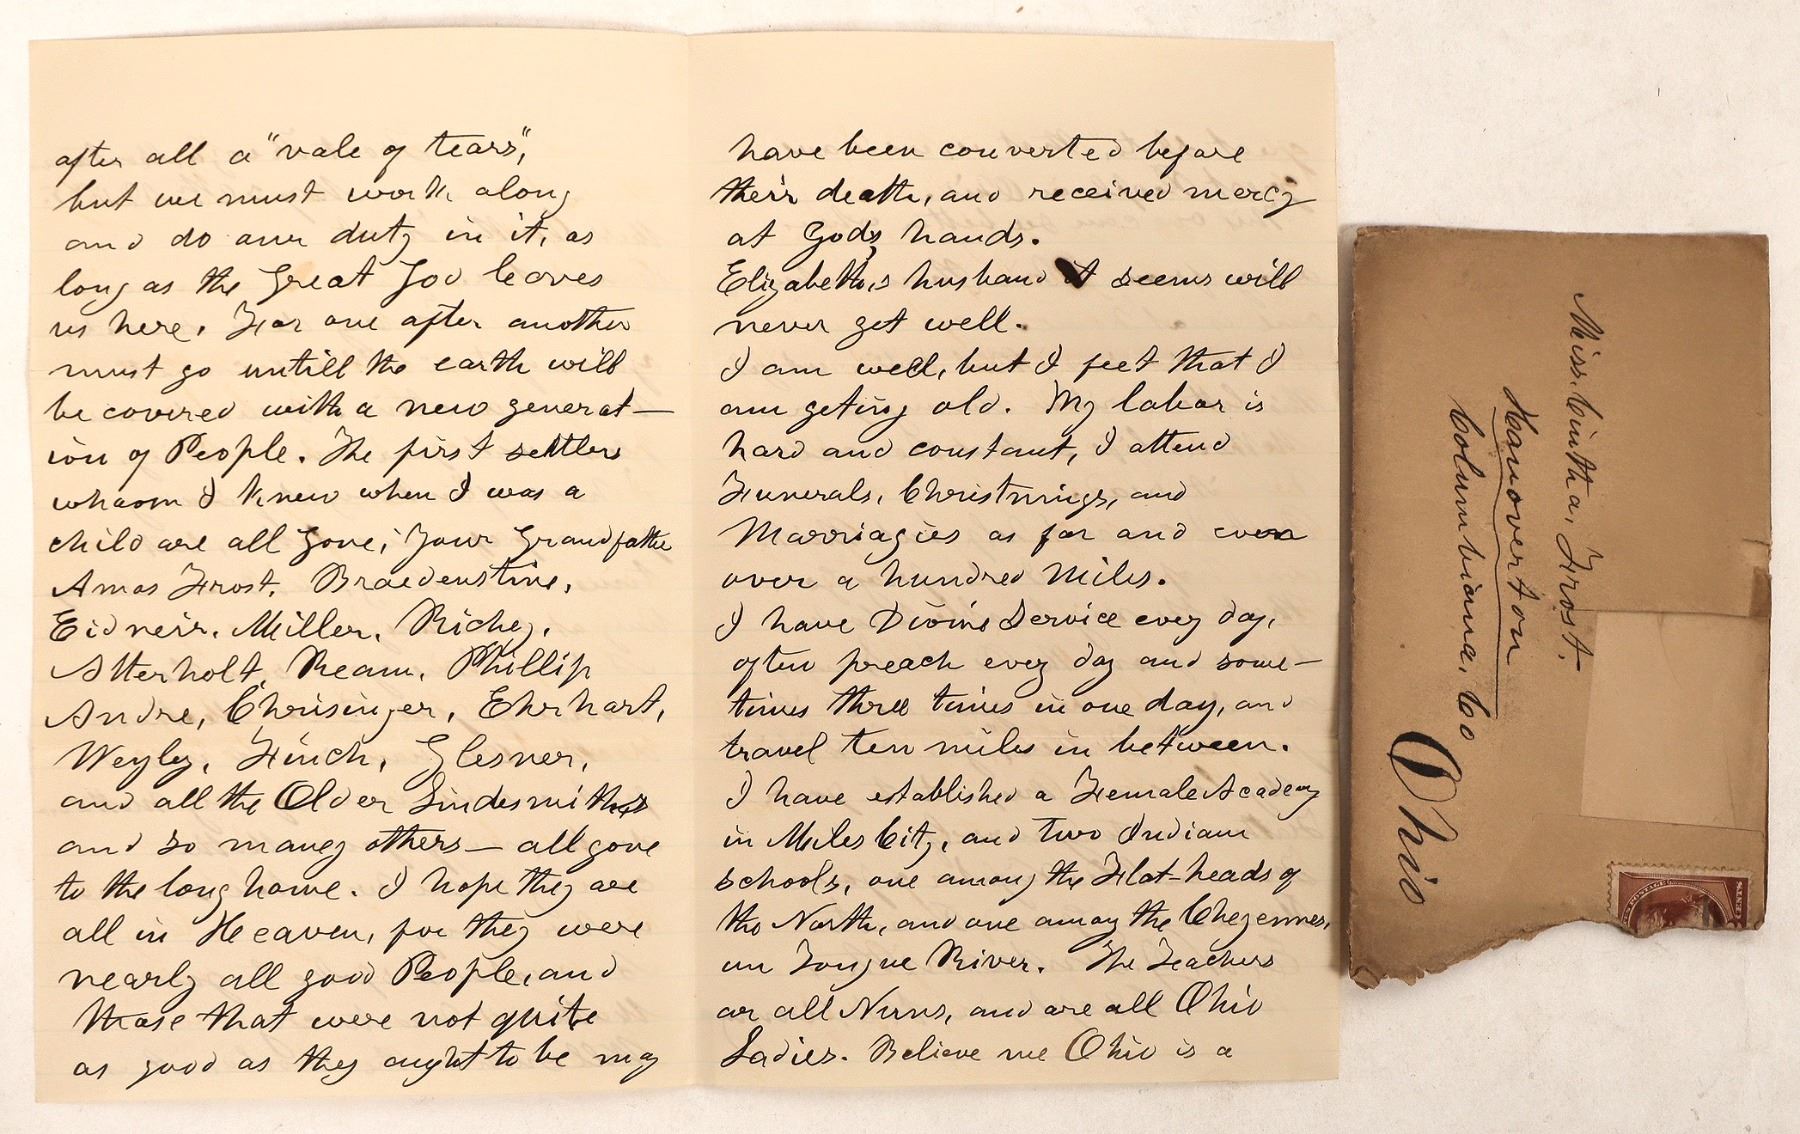 after all a "vale of tears",
but we must work along
and do our duty in it, as
long as the Great God leaves
us here. For one after another
must go untill the earth will
be covered with a new generat—
ion of People. The first settlers
whoom I knew when I was a
child are all gone; Your Grandfather
Amos Frost, Braedenstine,
Eidneir, Miller, Richey,
Atterholt, Ream, Phillip
Andre, Chrisinger, Ehrhart,
Weyley, Finch, Glesner,
and all the Older Lindesmiths
and so maney others — all gone
to the long home. I hope they are
all in Heaven, for they were
nearly all good People, and
those that were not quite
as good as they aught to be may
have been converted before
their death, and received mercy
at God's hands.
Elizabeth,s husband it seems will
never get well.
I am well, but I feel that I
am geting old. My labor is
hard and constant, I attend
Funerals, Christnings, and
Marriagies as far and even
over a hundred Miles.
I have Divine Service evey day,
often preach evey day and some—
times three times in one day, and
travel ten miles in between.
I have established a Female Academy
in Miles City, and two Indian
schools, one among the Flat-heads of
the North, and one among the Cheyennes,
on Tongue River. The Teachers
ar all Nuns, and are all Ohio
Ladies. Believe me Ohio is a
Miss. Cintha, Frost.
Hanoverton
Columbiana, Co
Ohio